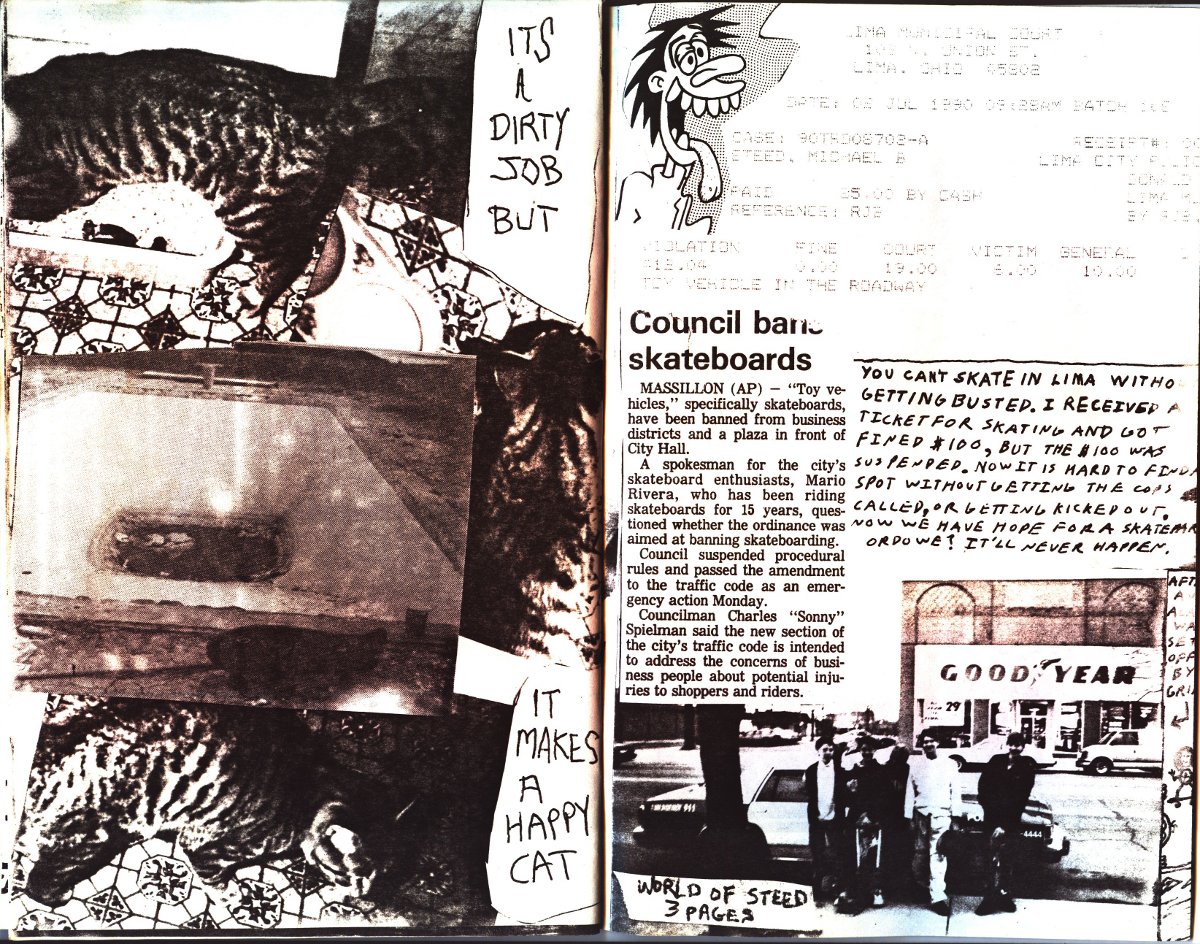 ITS
A
DIRTY
JOB
BUT
IT
MAKES
A
HAPPY
CAT
LIMA MUNICIPAL COURT
LIMA, OHIO 45802
DATE: 02 JUL 1990 09:28AM BATCH
STEED, MICHAEL B
LIMA CITY
PAID BY CASH
REFERENCE: RJB
VIOLATION FINE COURT VICTIM GENERAL
19.00 10.00
TOY VEHICLE IN THE ROADWAY
Council bans
skateboards
MASSILLON (AP) — “Toy ve-
hicles,” specifically skateboards,
have been banned from business
districts and a plaza in front of
City Hall.
A spokesman for the city’s
skateboard enthusiasts, Mario
Rivera, who has been riding
skateboards for 15 years, ques-
tioned whether the ordinance was
aimed at banning skateboarding.
Council suspended procedural
rules and passed the amendment
to the traffic code as an emer-
gency action Monday.
Councilman Charles “Sonny”
Spielman said the new section of
the city’s traffic code is intended
to address the concerns of busi-
ness people about potential inju-
ries to shoppers and riders.
YOU CANT SKATE IN LIMA WITHO
GETTING BUSTED. I RECEIVED A
TICKET FOR SKATING AND GOT
FINED $100, BUT THE $100 WAS
SUSPENDED. NOW IT IS HARD TO FIND A
SPOT WITHOUT GETTING THE COPS
CALLED, OR GETTING KICKED OUT.
NOW WE HAVE HOPE FOR A SKATEPAR
OR DO WE? IT'LL NEVER HAPPEN.
GOOD YEAR
29
911
4444
WORLD OF STEED
3 PAGES
A
A
WA
SE
OFF
BY
GRI